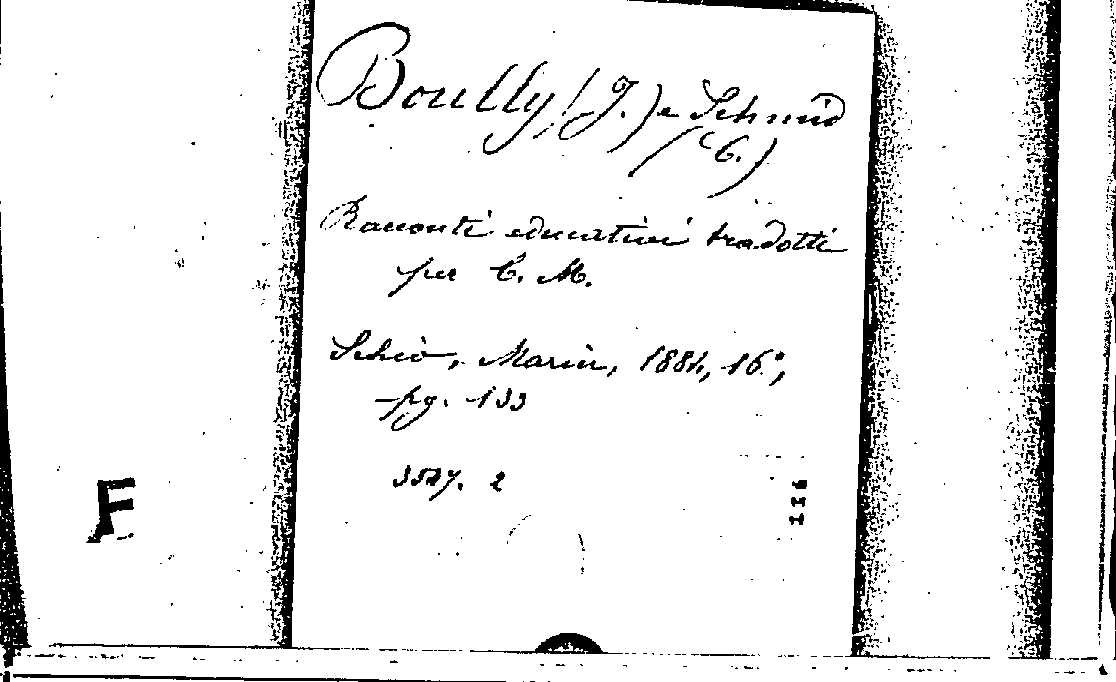 Boully (J.) e Schmid
(C.)
Racconti educativi tradotti
per C. M.
Schio, Marin, 1884, 16°,
pg. 133
3527. 2
116
F